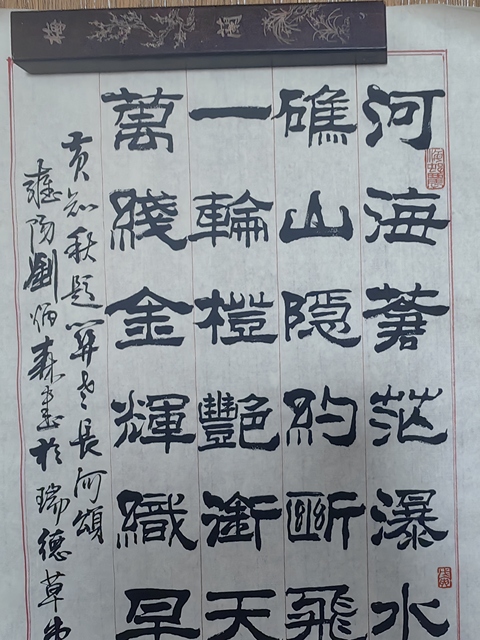 梅 蘭
河海蒼茫瀑水
礁山隱約斷飛
一輪橙艷衝天
萬綫金輝織早
黄知秋題老長河頌
雍陽劉炳森書於瑞德草